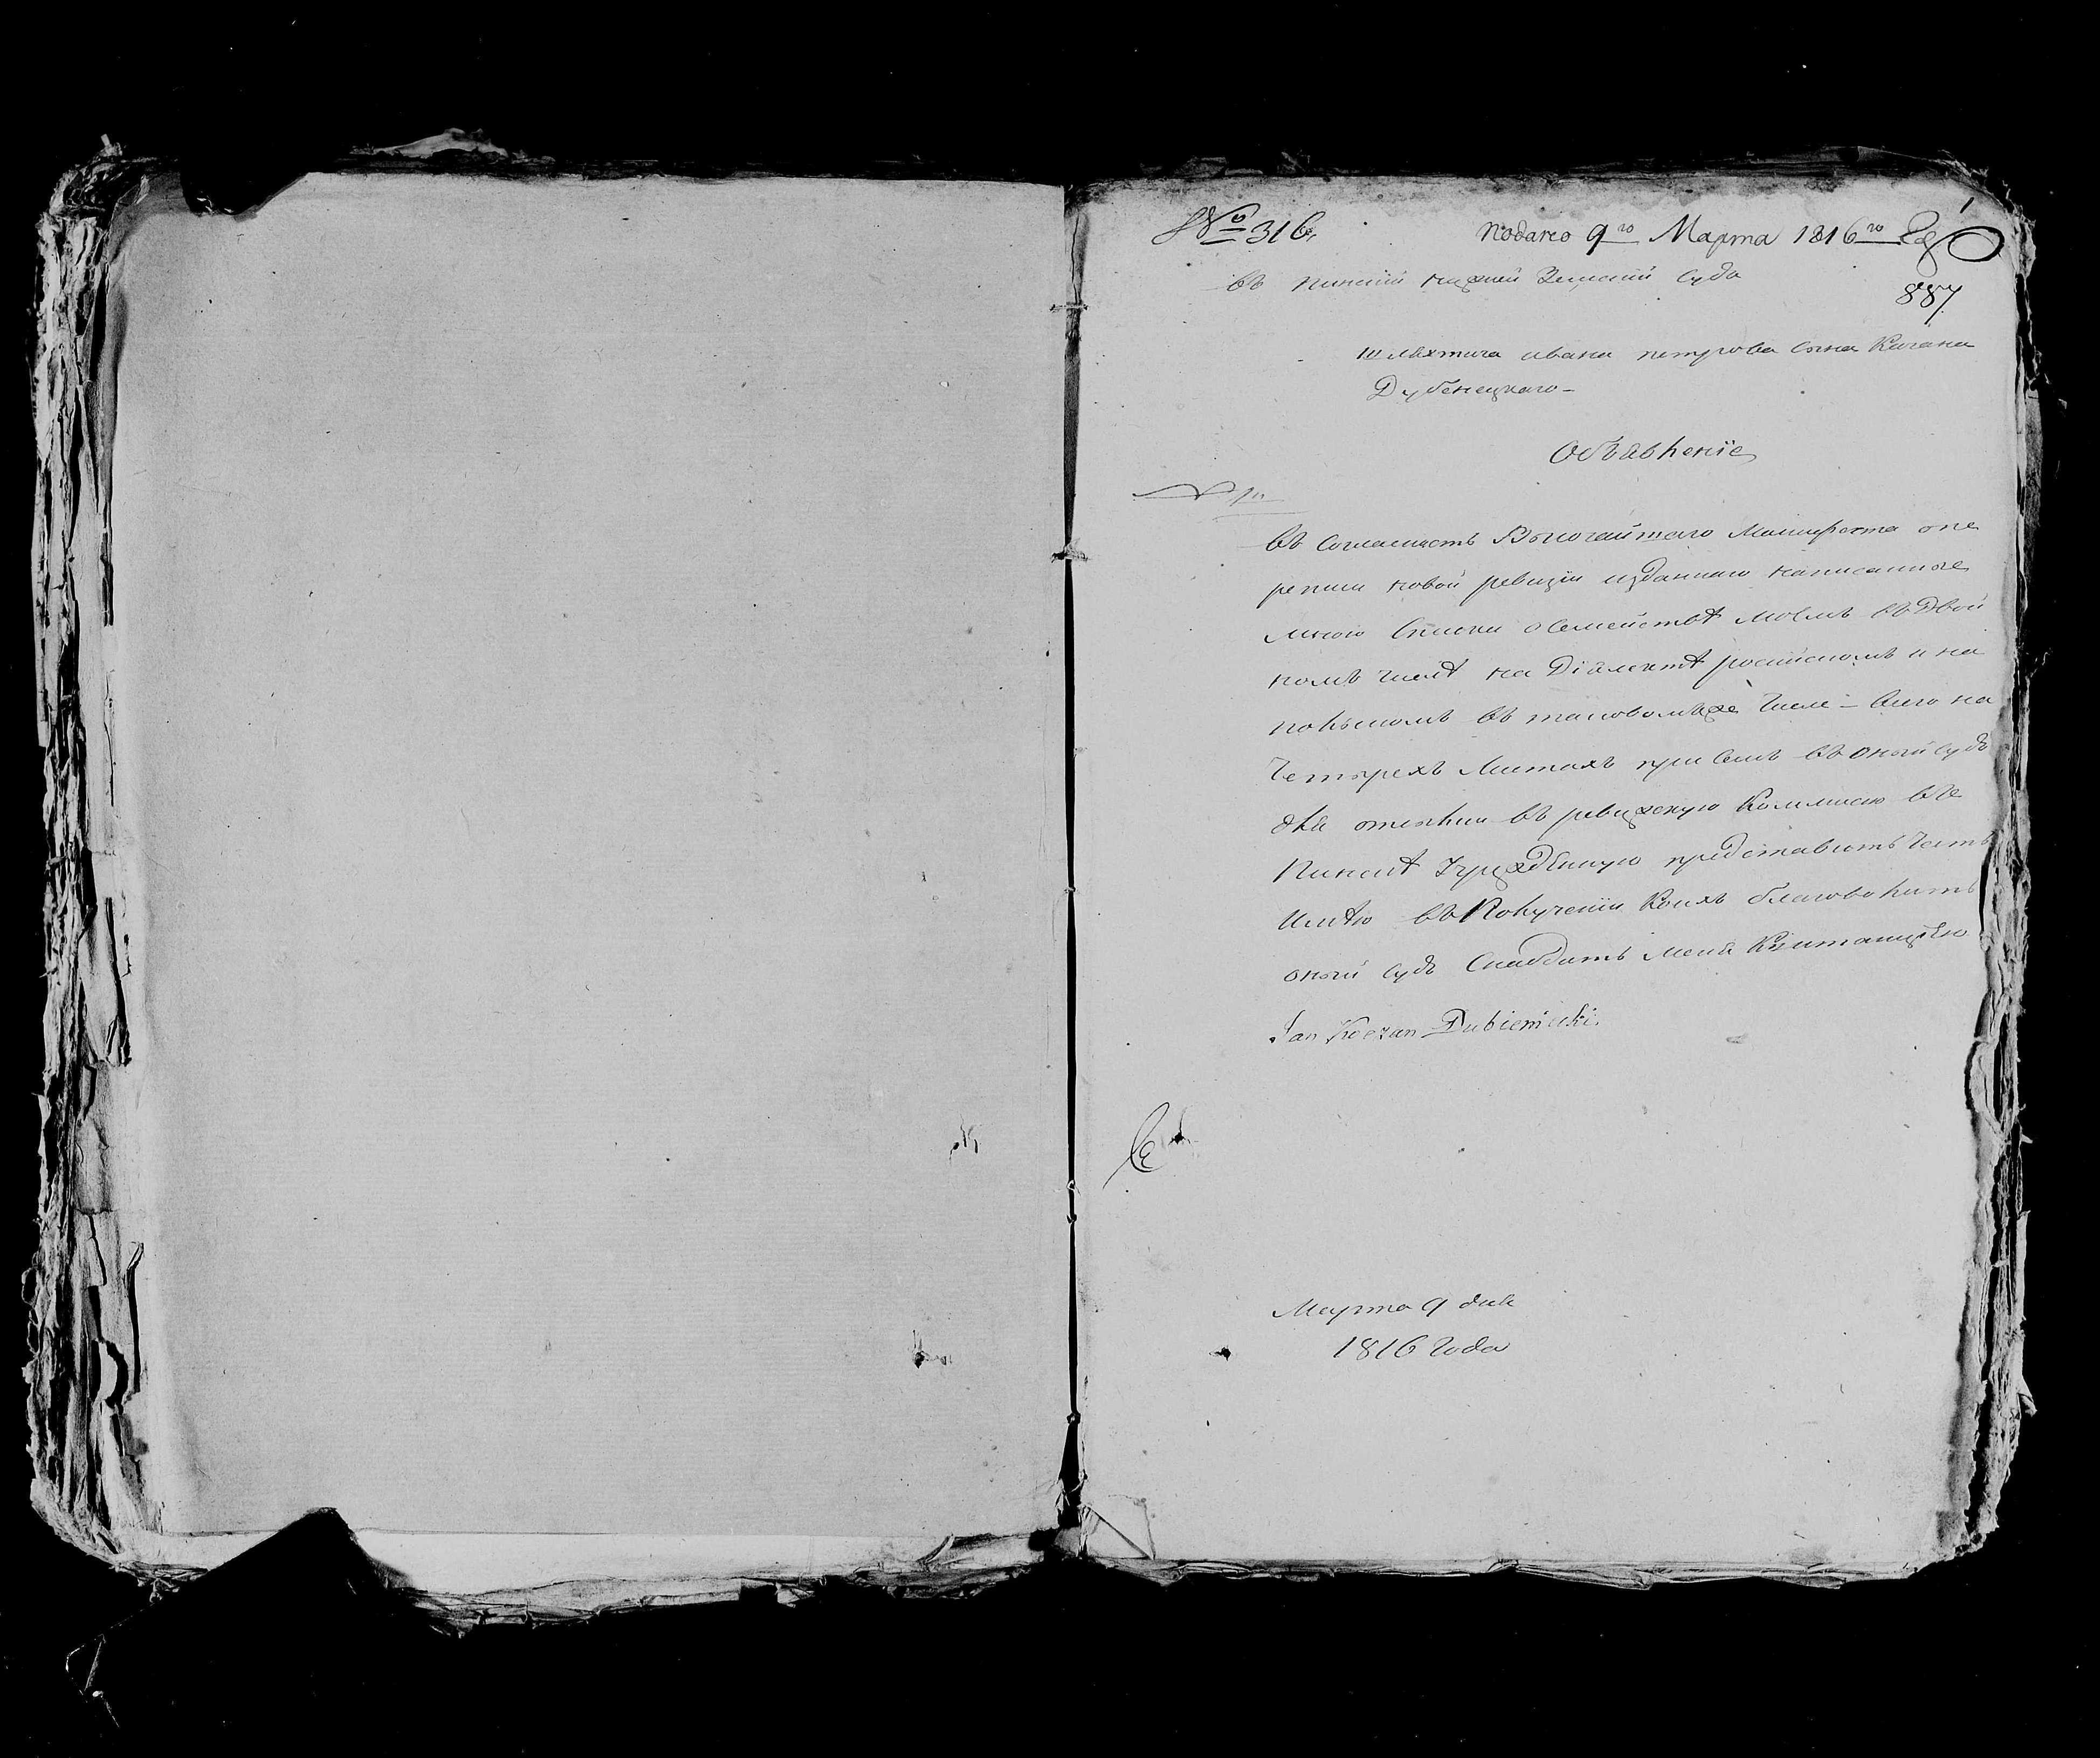 № 316. подано 9го Марта 1816го Года
887
въ пинский нижней Земский Судъ
шляхтича ивана петрова сына Качана
Дубенецкаго -
Объявленiе
въ согласность Высочайшаго Манифеста опе
реписи новой ревизiи изданнаго написанные
мною списки осемействѣ моемъ въ двой
комъ числѣ на Дiалектѣ россiйскомъ и на
польскомъ въ таковомъже числе - всего на
четырехъ листахъ при семъ въ оный судъ
для отсылки въ ревижскую Коммисiю въ
Пинскѣ учрежденную представить честь
имѣю въ Получении коихъ благоволить
оный судъ снабдить меня Квитанцiею
Jan Koczan Dubieniecki.
Марта 9 дня
1816 года